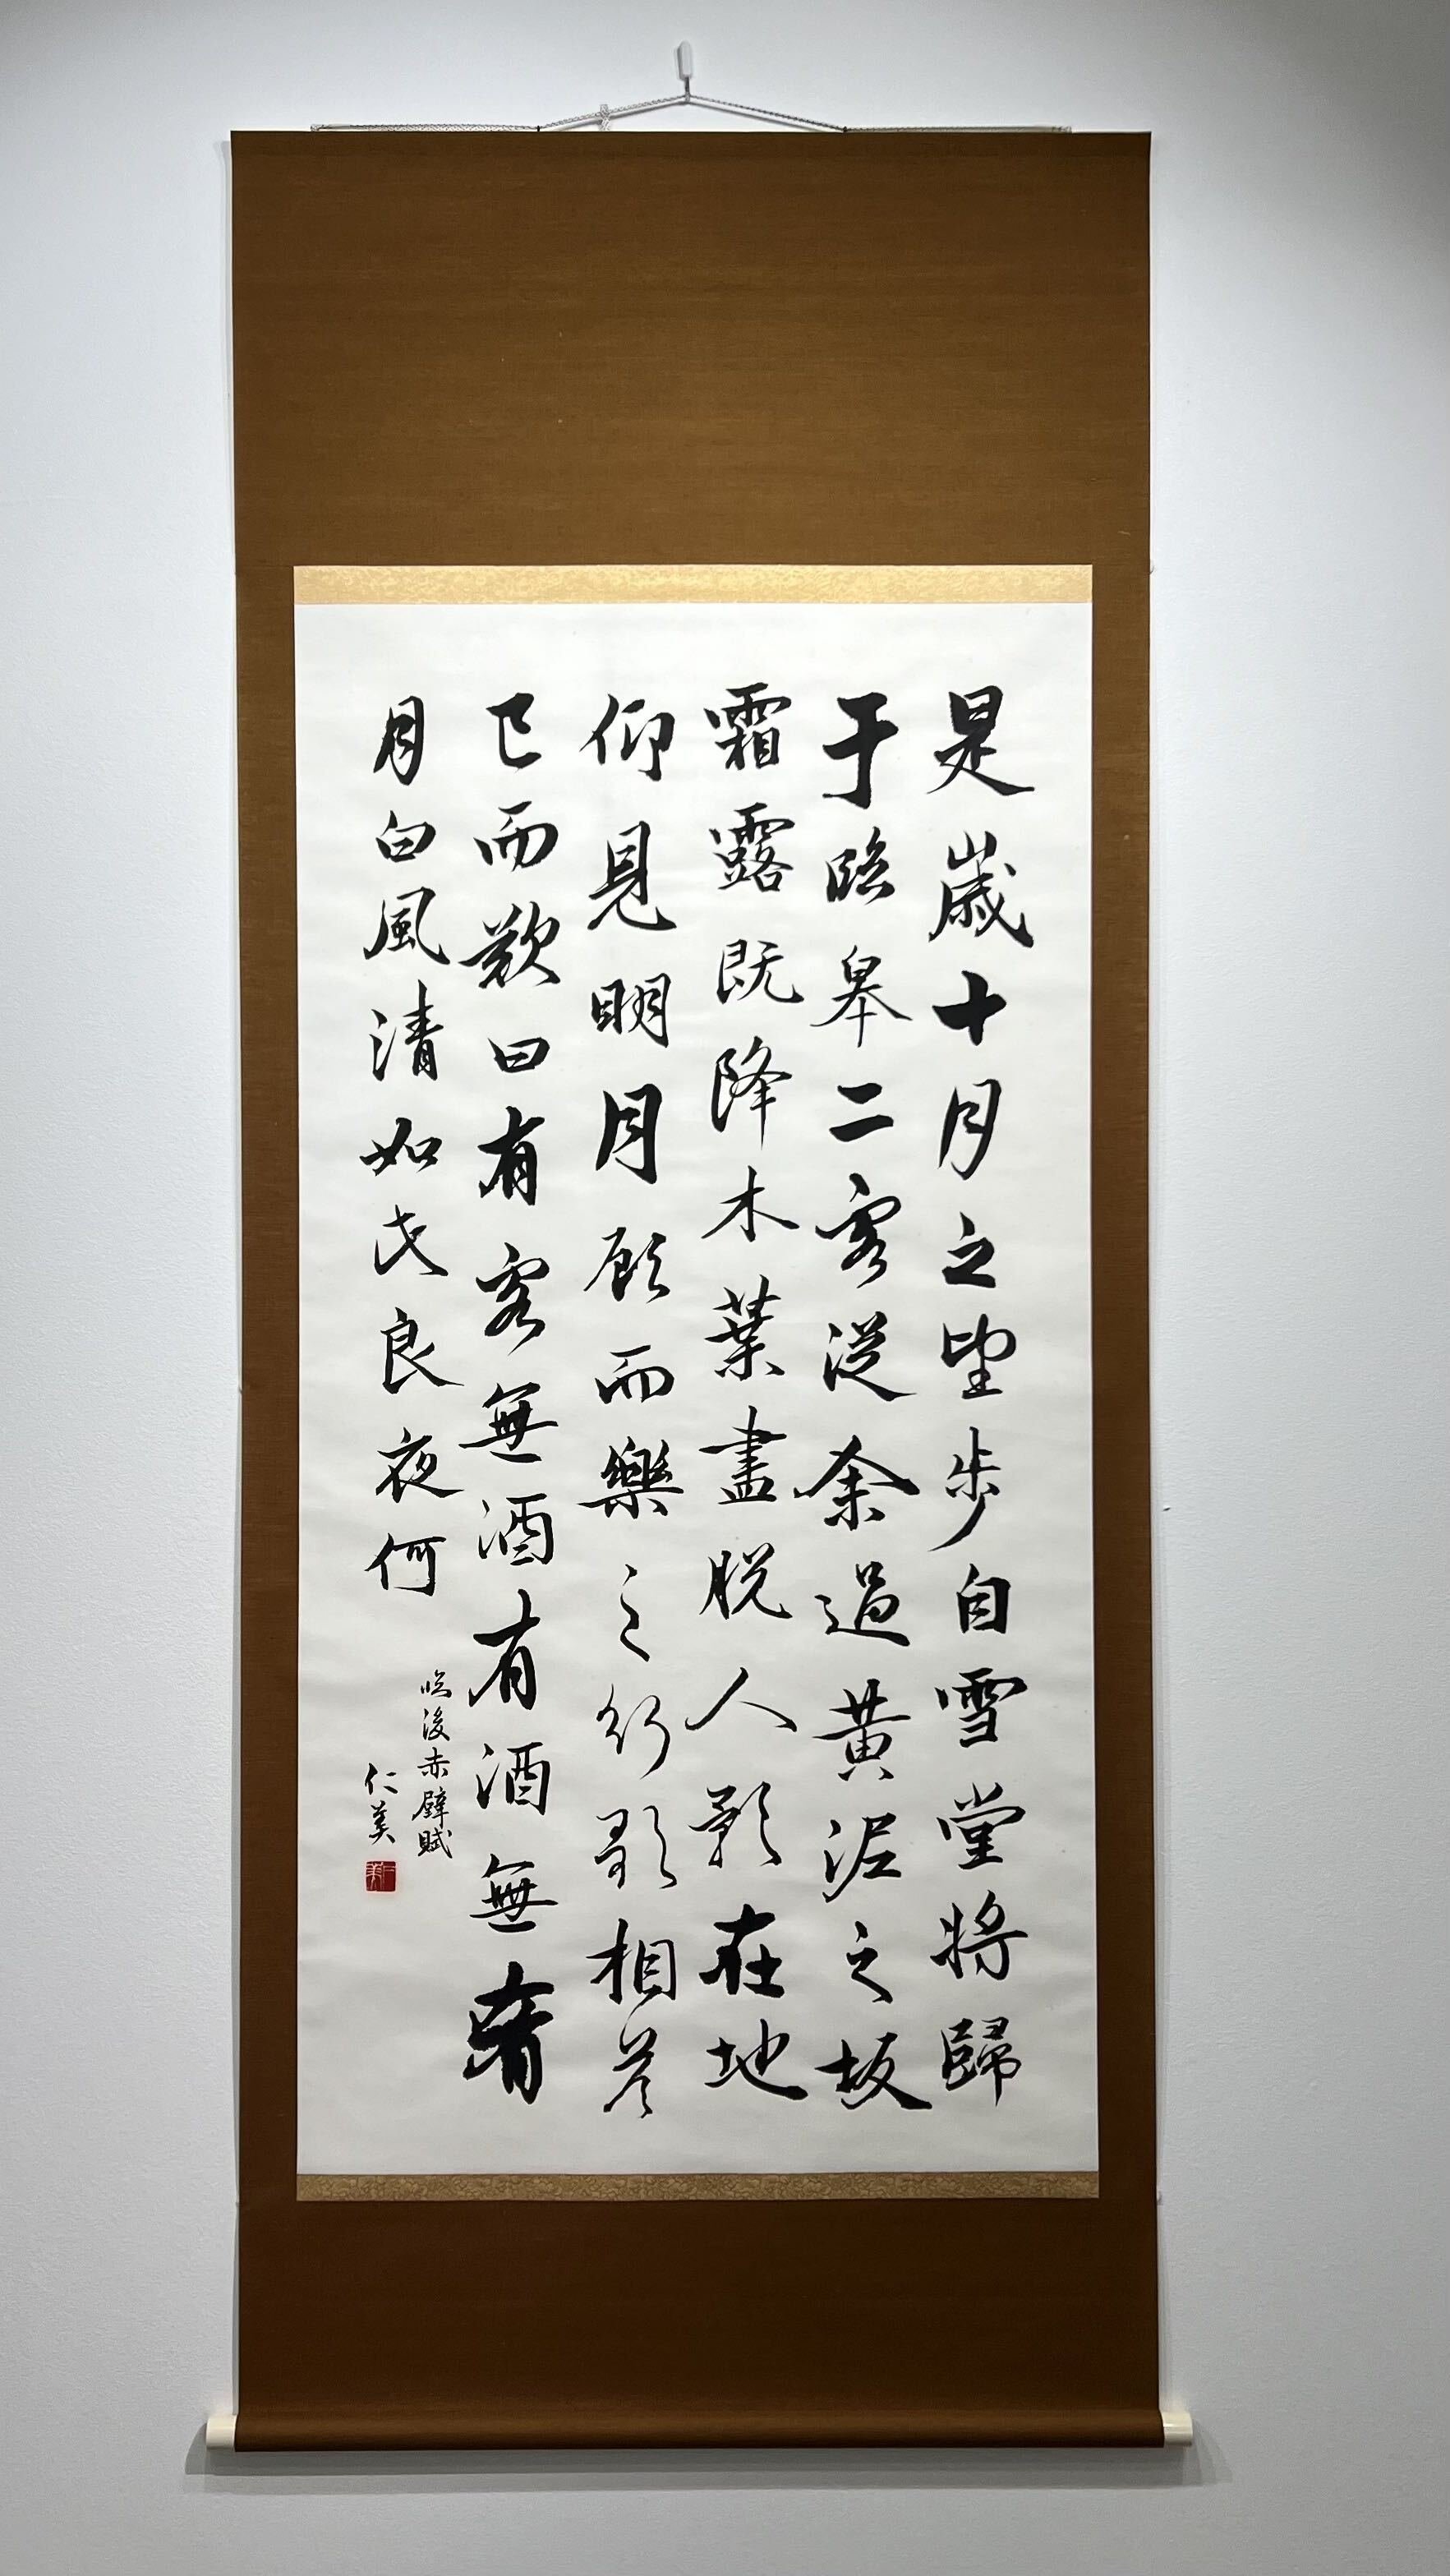 是歳十月之望歩自雪堂將歸
于臨皋二客從余過黄泥之坂
霜露既降木葉盡脱人影在地
仰見明月顧而樂之行歌相答
已而歎曰有客無酒有酒無肴
月白風清如此良夜何
臨後赤壁賦
仁美